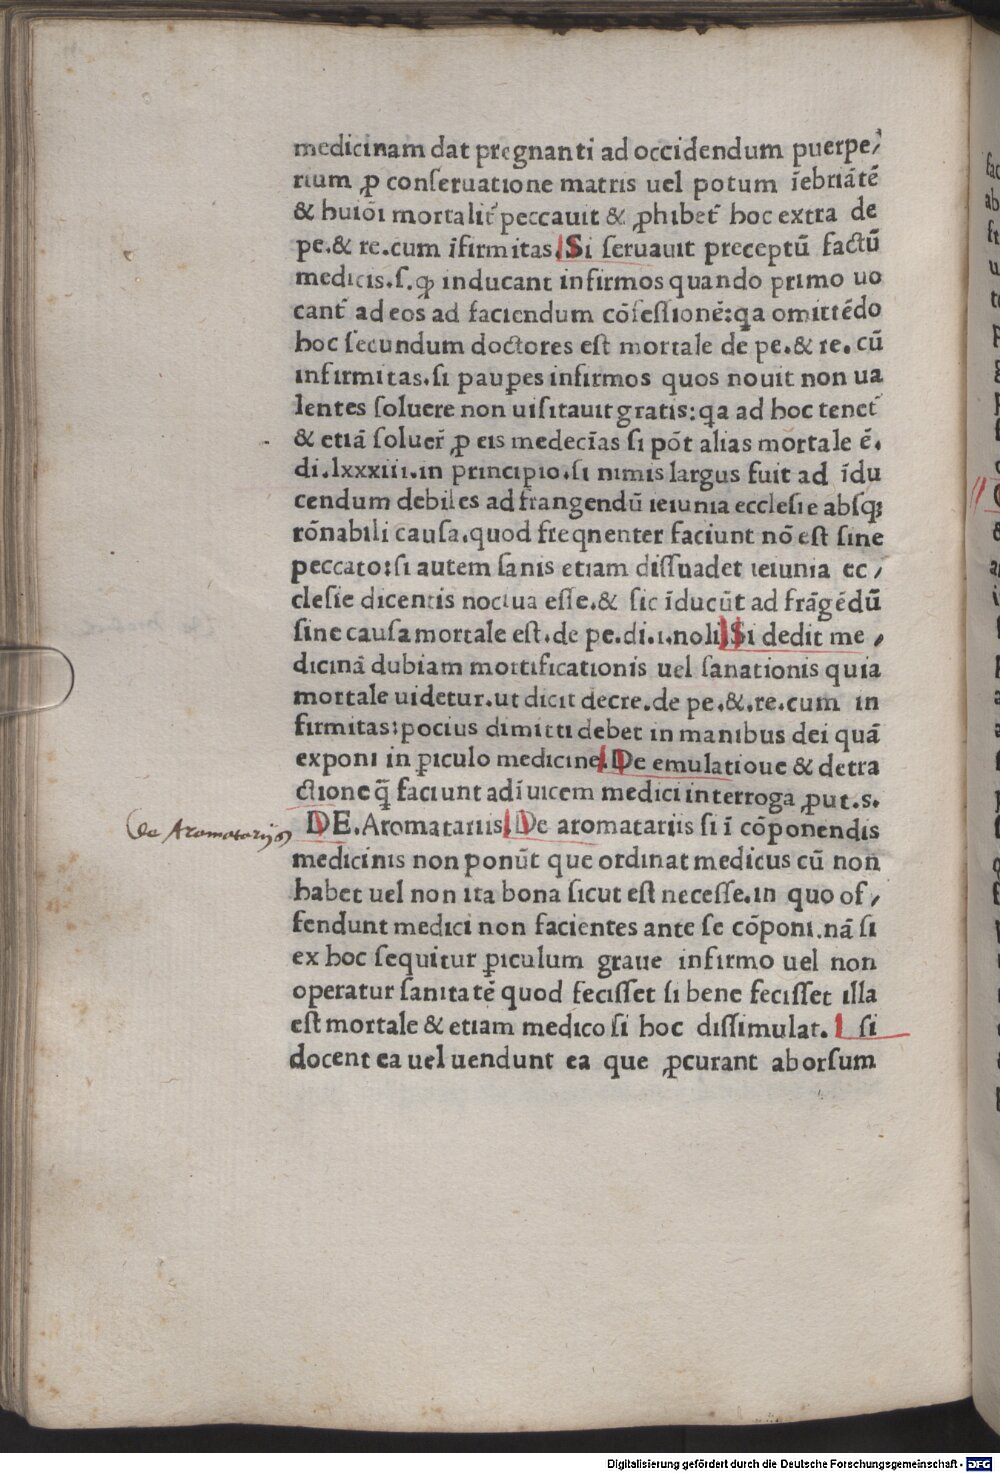 medicinam dat pregnanti ad occidendum puerpe/
rium ꝓ conſeruatione matris uel potum īebriātē
& huiōi mortalit̄ peccauit & ꝓhibet̄ hoc extra de
pe.& re.cum īfirmitas. Si ſeruauit preceptū factū
medicis.ſ.ꝙ inducant infirmos quando primo uo
cant̄ ad eos ad faciendum cōfeſſionē:qa omittēdo
hoc ſecundum doctores eſt mortale de pe.& re.cū
infirmitas.ſi pauꝑes infirmos quos nouit non ua
lentes ſoluere non uiſitauit gratis:qa ad hoc tenet̄
& etiā ſoluer̄ ꝓ eis medecīas ſi pōt alias mortale ē.
di.lxxxiii.in principio.ſi nimis largus fuit ad īdu
cendum debiles ad frangendū ieiunia eccleſie abſqȝ
rōnabili cauſa.quod freqnenter faciunt nō eſt ſine
peccato:ſi autem ſanis etiam diſſuadet ieiunia ec/
cleſie dicentis nociua eſſe.& ſic īducūt ad frāgēdū
ſine cauſa mortale eſt.de pe.di.i.noli. Si dedit me/
dicinā dubiam mortificationis uel ſanationis quia
mortale uidetur.ut dicit decre.de pe.&.re.cum in
firmitas:pocius dimitti debet in manibus dei quā
exponi in ꝑiculo medicine. De emulatioue & detra
ctione q̄ faciunt adīuicem medici interroga ꝓut.s.
de Aromatarijs
DE.Aromatariis. De aromatariis ſi ī cōponendis
medicinis non ponūt que ordinat medicus cū non
habet uel non ita bona ſicut eſt neceſſe.in quo of/
fendunt medici non facientes ante ſe cōponi.nā ſi
ex hoc ſequitur ꝑiculum graue infirmo uel non
operatur ſanitatē quod feciſſet ſi bene feciſſet illa
eſt mortale & etiam medico ſi hoc diſſimulat. ſi
docent ea uel uendunt ea que ꝓcurant aborſum
Digitalisierung gefördert durch die Deutsche Forschungsgemeinschaft - DFG